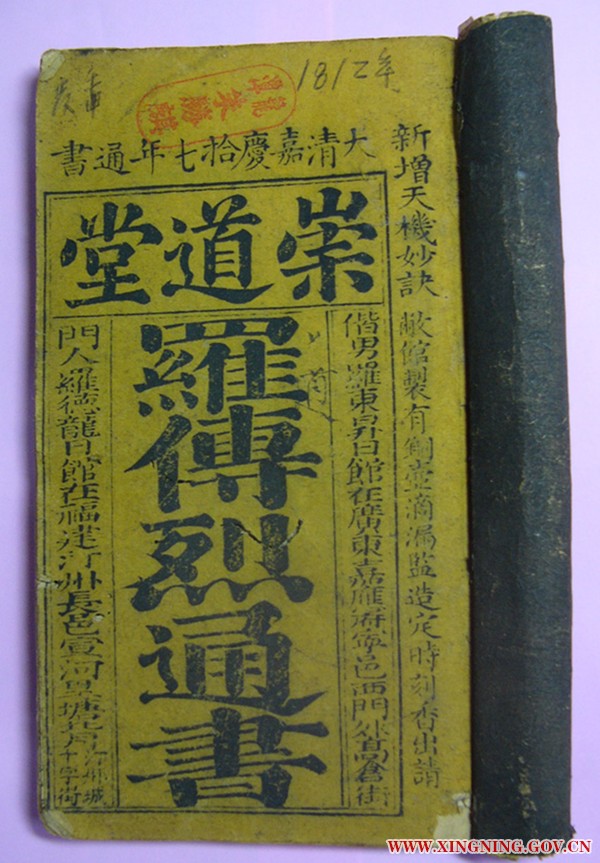 1812年
大清嘉慶拾七年通書
崇道堂
新增天機妙訣
敝館製有銅壺滴漏監造定時刻香出請
偕男羅東昇日館在廣東嘉應府寧邑西門外
羅傳烈通書
門人羅德龍日館在福建汀州長邑宣河里
十字街
WWW.XINGNING.GOV.CN